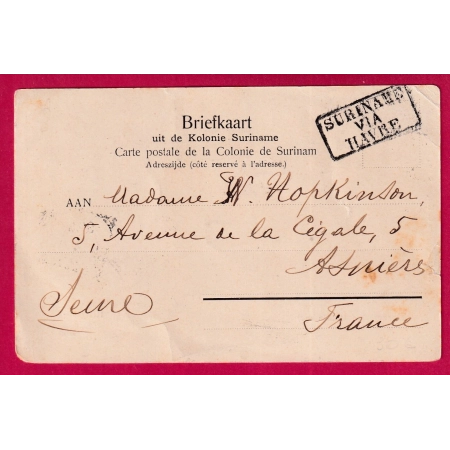 SURINAME
VIA
HAVRE
Briefkaart
uit de Kolonie Suriname
Carte postale de la Colonie de Surinam
Adreszijde (côté reservé à l'adresse.)
AAN Madame W. Hopkinson,
5, Avenue de la Cégale, 5
Asnières
Seine
France